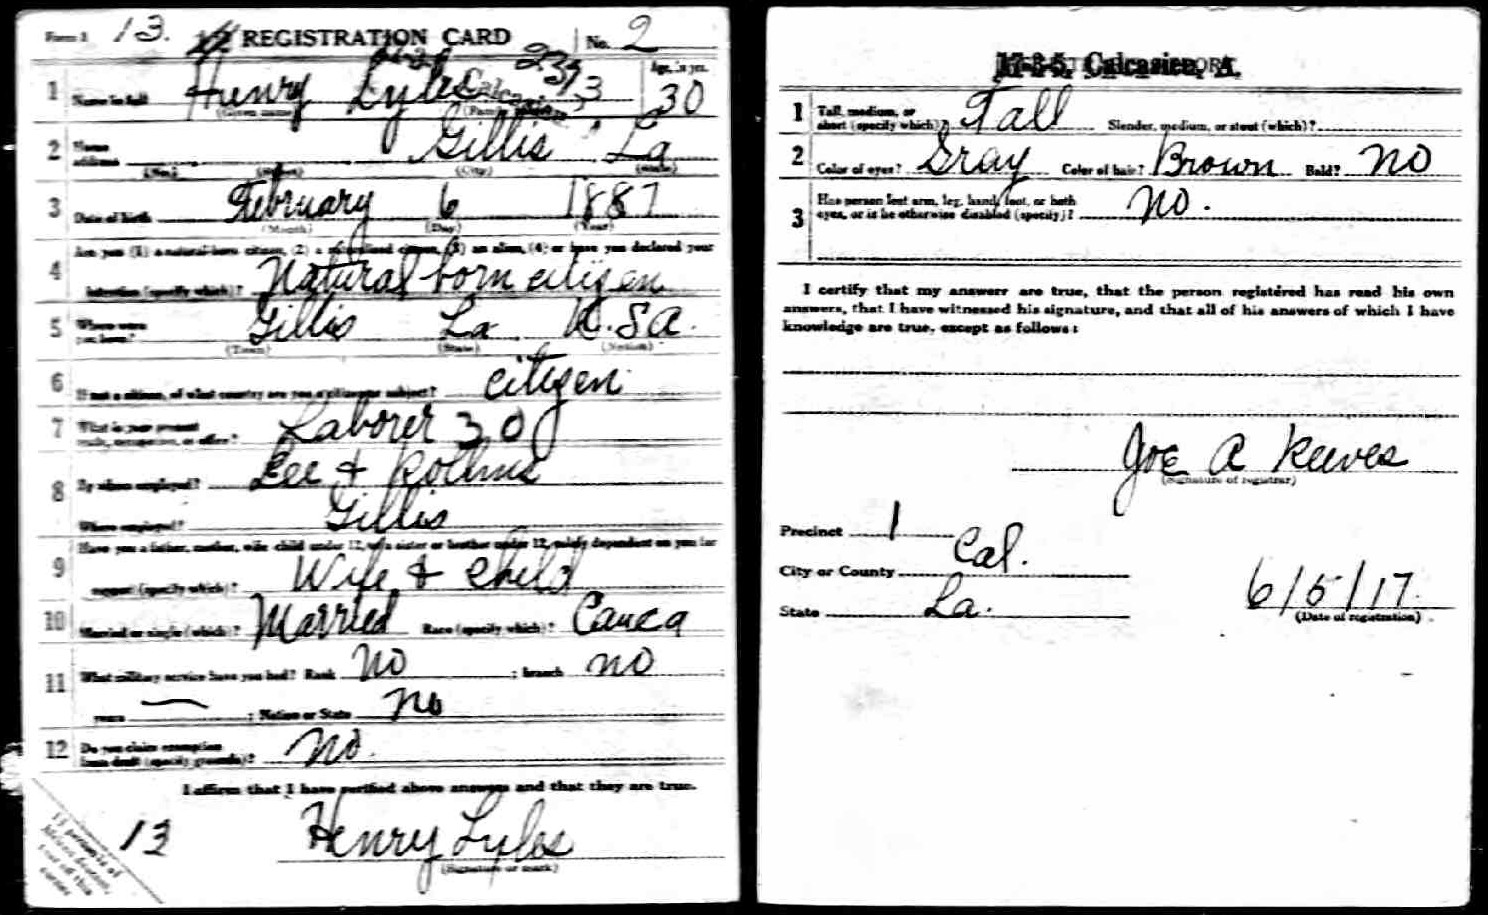 Form 1 13. REGISTRATION CARD No. 2
1 Name in full Henry Lyles Age, in yrs. 30
(Given name) (Family name)
2 Home address Gillis La
(No.) (Street) (City) (State)
3 Date of birth February 6 1887
(Month) (Day) (Year)
4 Are you (1) a natural-born citizen, (2) a naturalized citizen, (3) an alien, (4) or have you declared your
intention (specify which)? Natural born citizen
5 Where were you born? Gillis La U.S.A.
(Town) (State) (Nation)
6 If not a citizen, of what country are you a citizen or subject? citizen
7 What is your present trade, occupation, or office? Laborer 30
8 By whom employed? Lee & Rollins
Where employed? Gillis
9 Have you a father, mother, wife, child under 12, or a sister or brother under 12, solely dependent on you for
support (specify which)? Wife & child
10 Married or single (which)? Married Race (specify which)? Cauca
11 What military service have you had? Rank no ; branch no
years — ; Nation or State no
12 Do you claim exemption from draft (specify grounds)? no.
I affirm that I have verified above answers and that they are true.
13 Henry Lyles
(Signature or mark)
If person is of African descent, tear off this corner
17-3-5. Calcasieu, A.
1 Tall, medium, or short (specify which)? Tall Slender, medium, or stout (which)?
2 Color of eyes? Gray Color of hair? Brown Bald? no
3 Has person lost arm, leg, hand, foot, or both
eyes, or is he otherwise disabled (specify)? no.
I certify that my answers are true, that the person registered has read his own
answers, that I have witnessed his signature, and that all of his answers of which I have
knowledge are true, except as follows:
Joe A Reeves
(Signature of registrar)
Precinct 1
City or County Cal.
State La. 6/5/17
(Date of registration)